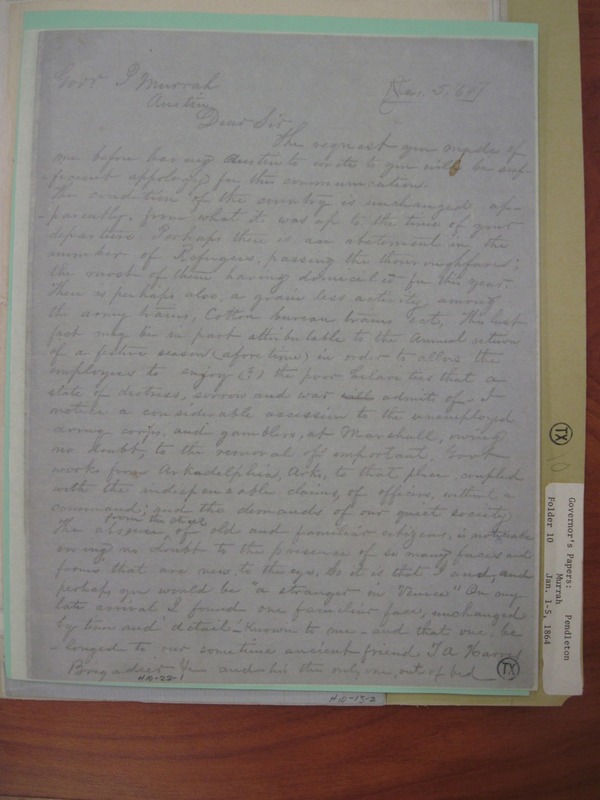 Govr P Murrah
Jan. 5, 64
Austin
Dear Sir
The request you made of
me before leaving Austin to write to you will be suf-
-ficient appology for this communication.
The condition of the country is unchanged ap-
-parently, from what it was up to the time of your
departure Perhaps there is an abatement in the
number of Refugees, passing the thouroughfares;
the most of them having domiciled for this year.
There is perhaps also, a grain less activity among
the army trains, Cotton bureau trains &ct, This last
fact may be in part attributable to the Annual return
of a festive season (afore time) in order to allow the
employees to enjoy (?) the poor hilarities that a
state of distress, sorrow and war will admit of. I
notice a considerable accession to the unemployed
corps, and gamblers, at Marshall, owing
no doubt, to the removal of important, Govt
works from Arkadelphia, Arks, to that place coupled
with the indispensable claims, of officers, without a
command; and the demands of our quiet society
from the street
The absence, of old and familiar citizens, is noticeable
owing no doubt to the presence of so many faces and
forms that are new, to the eye. So it is that I and, and
perhaps you would be "a stranger in Venice" On my
late arrival I found one familiar face, unchanged
by time and details - known to me - and that one, be
-longed to our sometime ancient friend J A Harris
and his the only one, out of bed
H10-22-1
TX
H10-13-2
TX
10
Governor's Papers: Pendleton
Murrah
Folder 10 Jan. 1-5, 1864